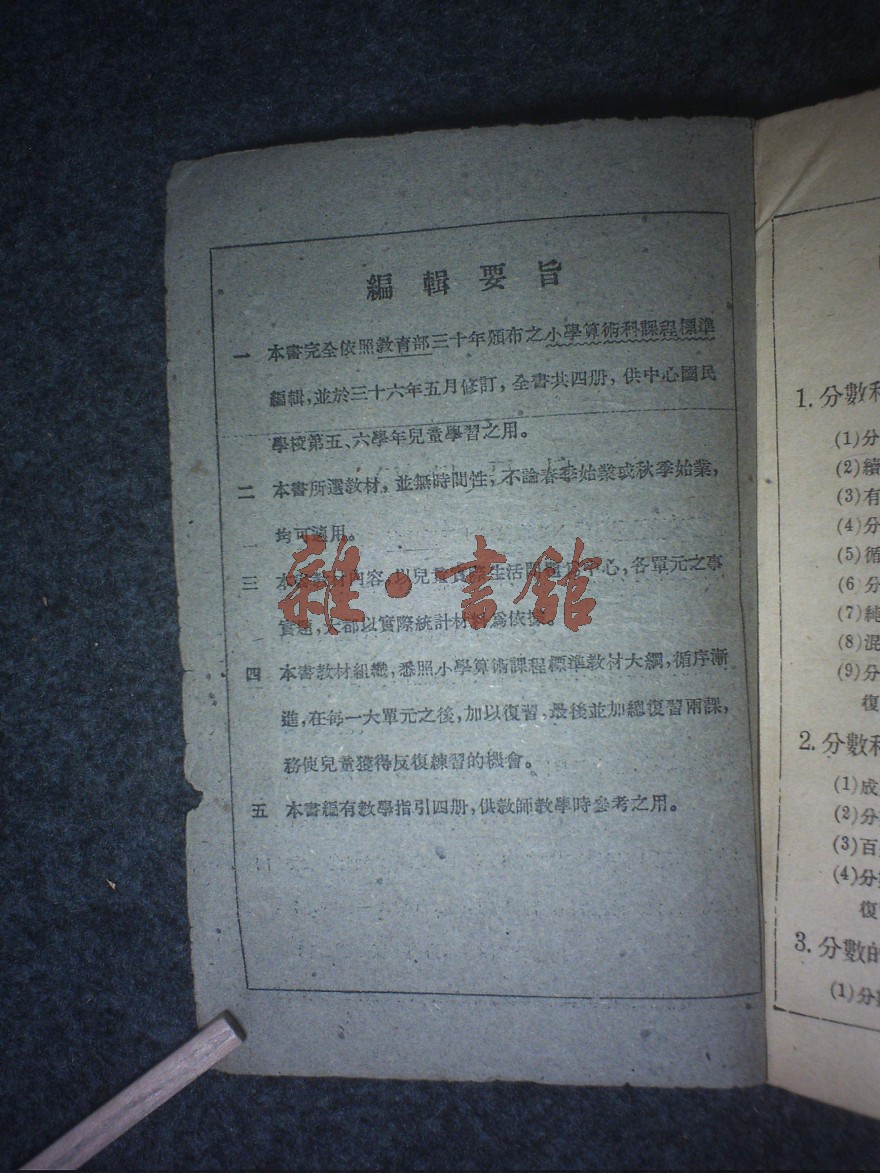 編輯要旨
一 本書完全依照教育部三十年頒布之小學算術科課程標準
編輯,並於三十六年五月修訂,全書共四册,供中心國民
學校第五、六學年兒童學習之用。
二 本書所選教材,並無時間性,不論春季始業或秋季始業,
均可適用。
三 本書教材內容,以兒童實際生活問題爲中心,各單元之事
實題,大都以實際統計材料爲依據。
四 本書教材組織,悉照小學算術課程標準教材大綱,循序漸
進,在每一大單元之後,加以復習,最後並加總復習兩課,
務使兒童獲得反復練習的機會。
五 本書編有教學指引四册,供教師教學時參考之用。
雜·書館
1. 分數和
(1)分
(2)續
(3)有
(4)分
(5)循
(6)分
(7)純
(8)混
(9)分
復
2. 分數和
(1)成
(2)分
(3)百
(4)分
復
3. 分數的
(1)分